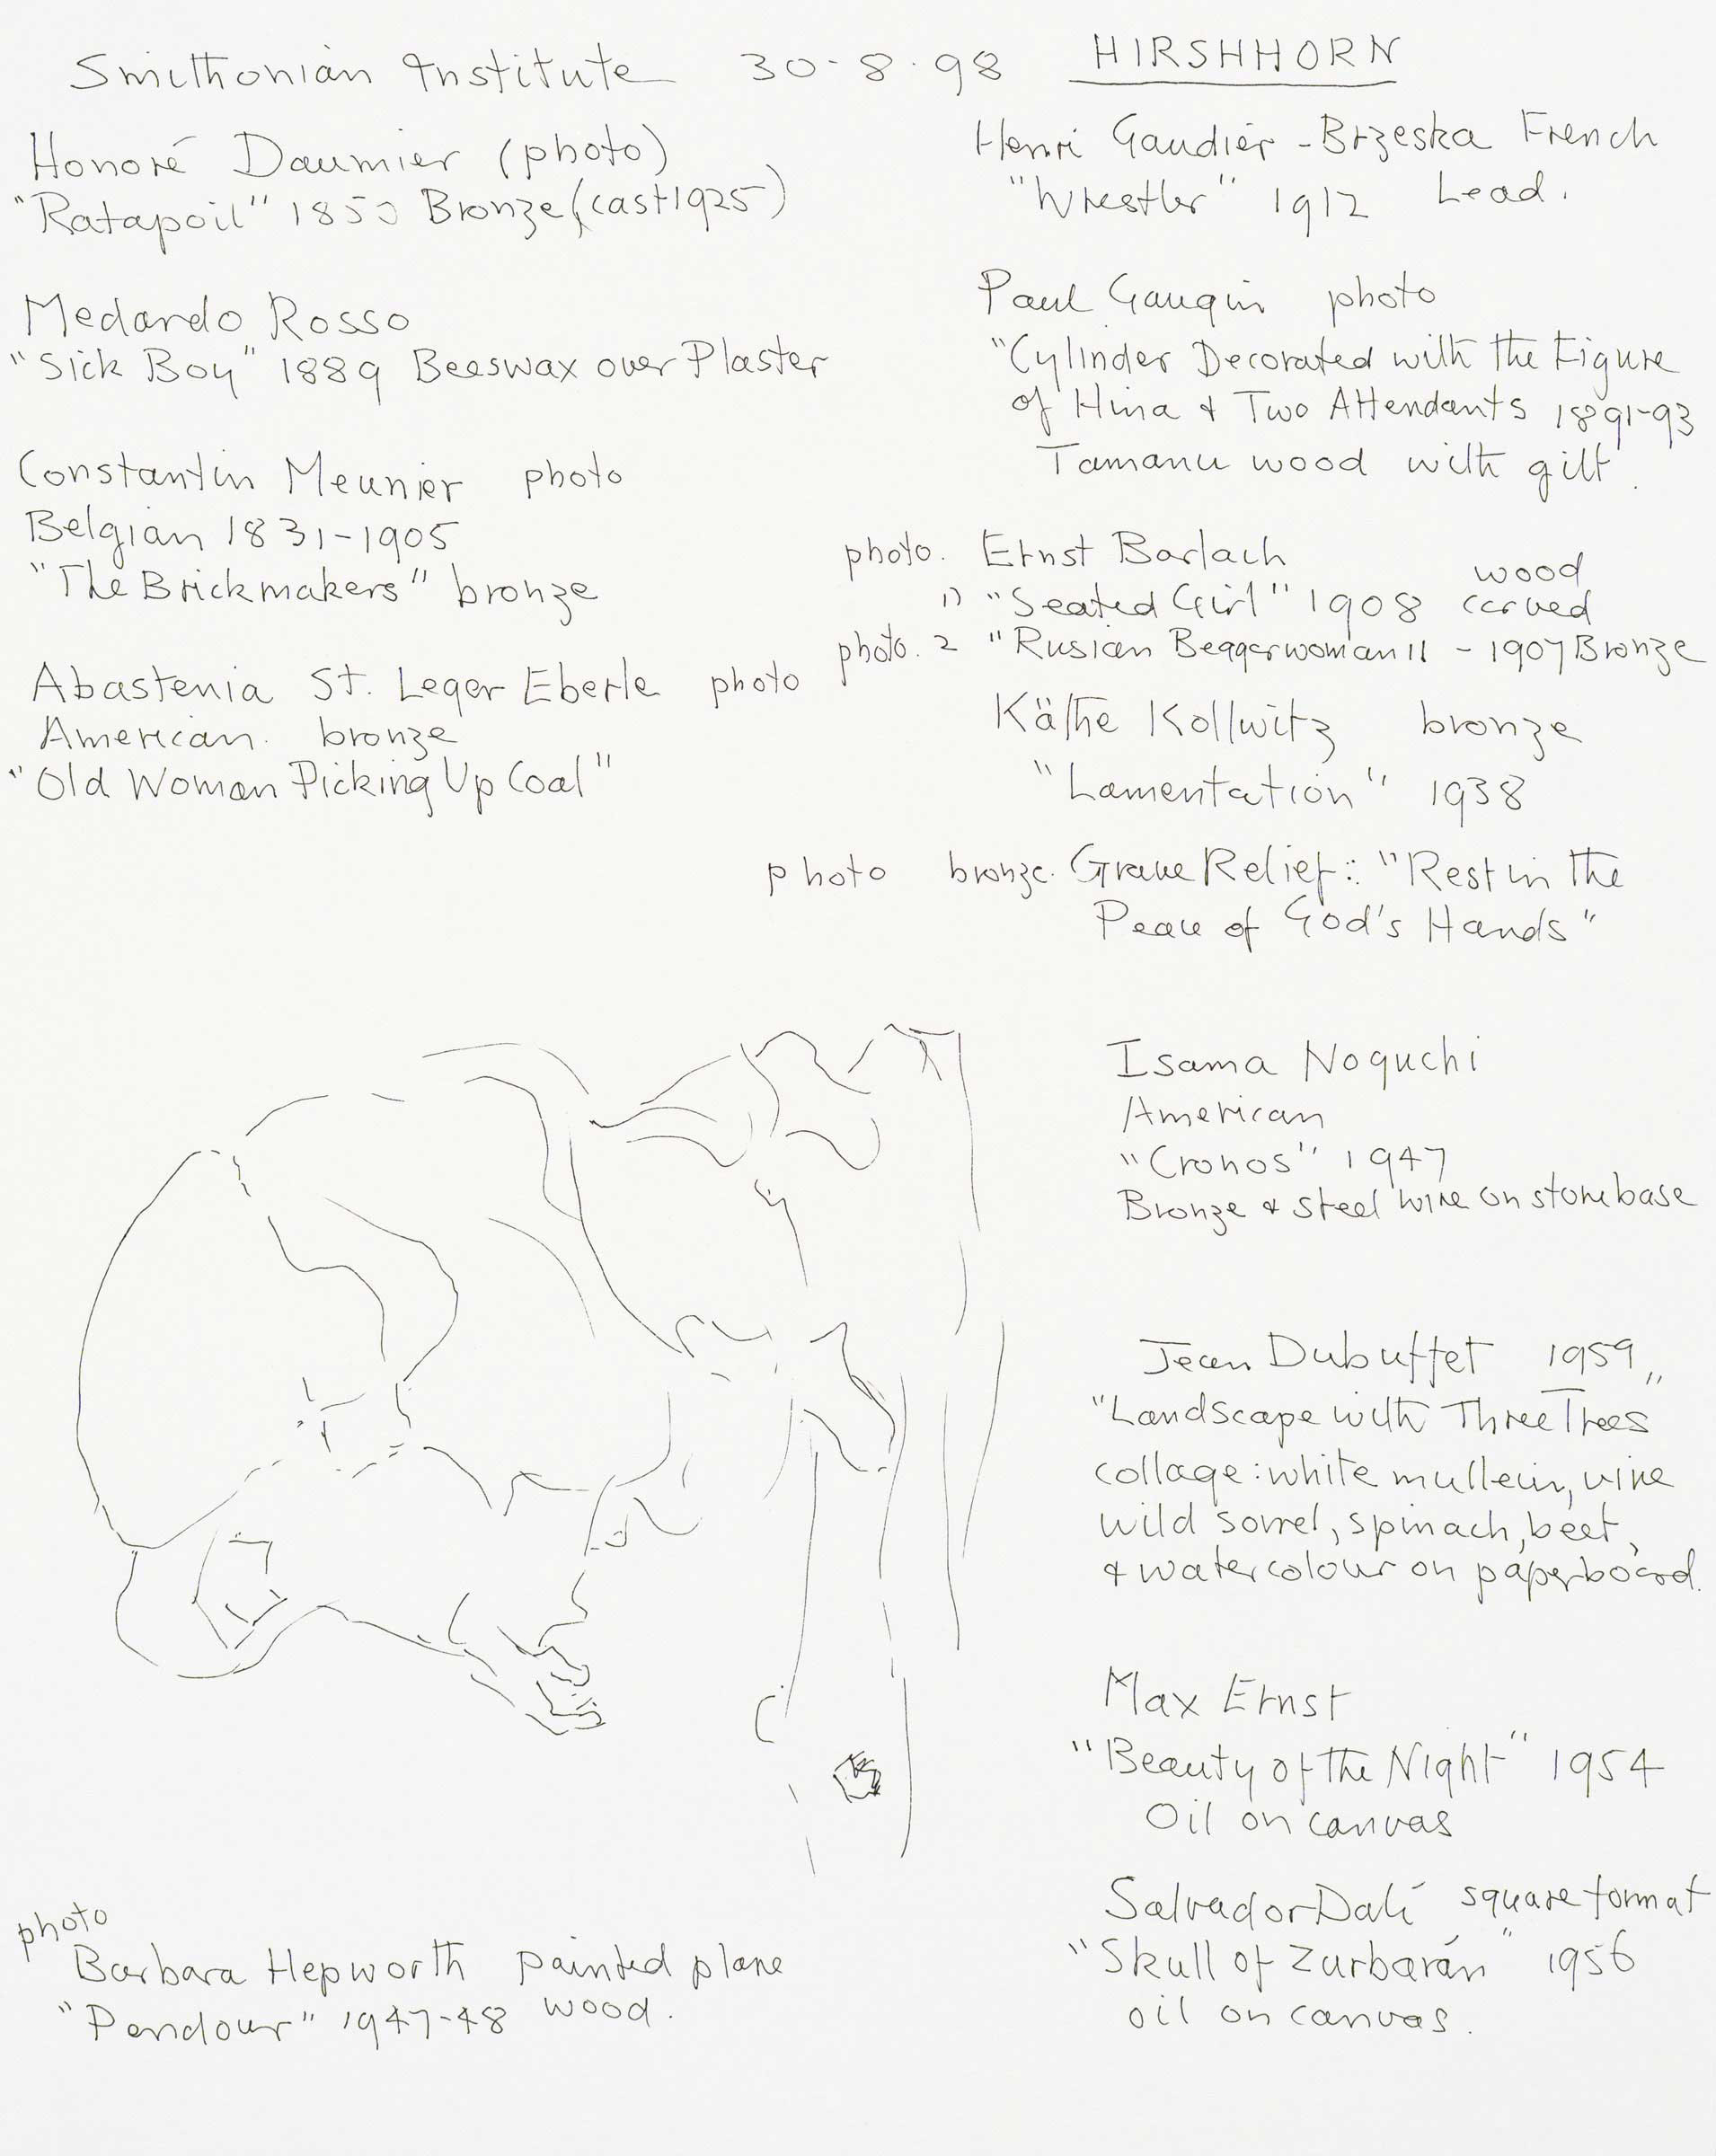 Smithonian Institute 30-8.98 HIRSHHORN
Honoré Daumier (photo)
"Ratapoil" 1850 Bronze (cast 1925)
Medardo Rosso
"Sick Boy" 1889 Beeswax over Plaster
Constantin Meunier photo
Belgian 1831-1905
"The Brickmakers" bronze
Abastenia St. Leger Eberle photo
American. bronze
"Old Woman Picking Up Coal"
Henri Gaudier-Brzeska French
"Wrestler" 1912 Lead.
Paul Gauqin photo
"Cylinder Decorated with the Figure
of Hina & Two Attendants 1891-93
Tamanu wood with gilt.
photo. Ernst Barlach
wood
1) "Seated Girl" 1908 carved
photo. 2 "Rusian Beggarwoman 11 - 1907 Bronze
Käthe Kollwitz bronze
"Lamentation" 1938
photo bronze. Grave Relief: "Rest in the
Peace of God's Hands"
Isama Noguchi
American
"Cronos" 1947
Bronze & steel wire on stone base
Jean Dubuffet 1959
"Landscape with Three Trees"
collage: white mullein, vine
wild sorrel, spinach, beet,
& watercolour on paperboard.
Max Ernst
"Beauty of the Night" 1954
Oil on canvas
Salvador Dalí square format
"Skull of Zurbarán" 1956
oil on canvas.
photo
Barbara Hepworth painted plane
"Pendour" 1947-48 wood.